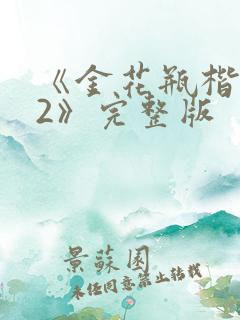 《金花瓶楷
2》完整版
景蘇園
未经同意禁止转载